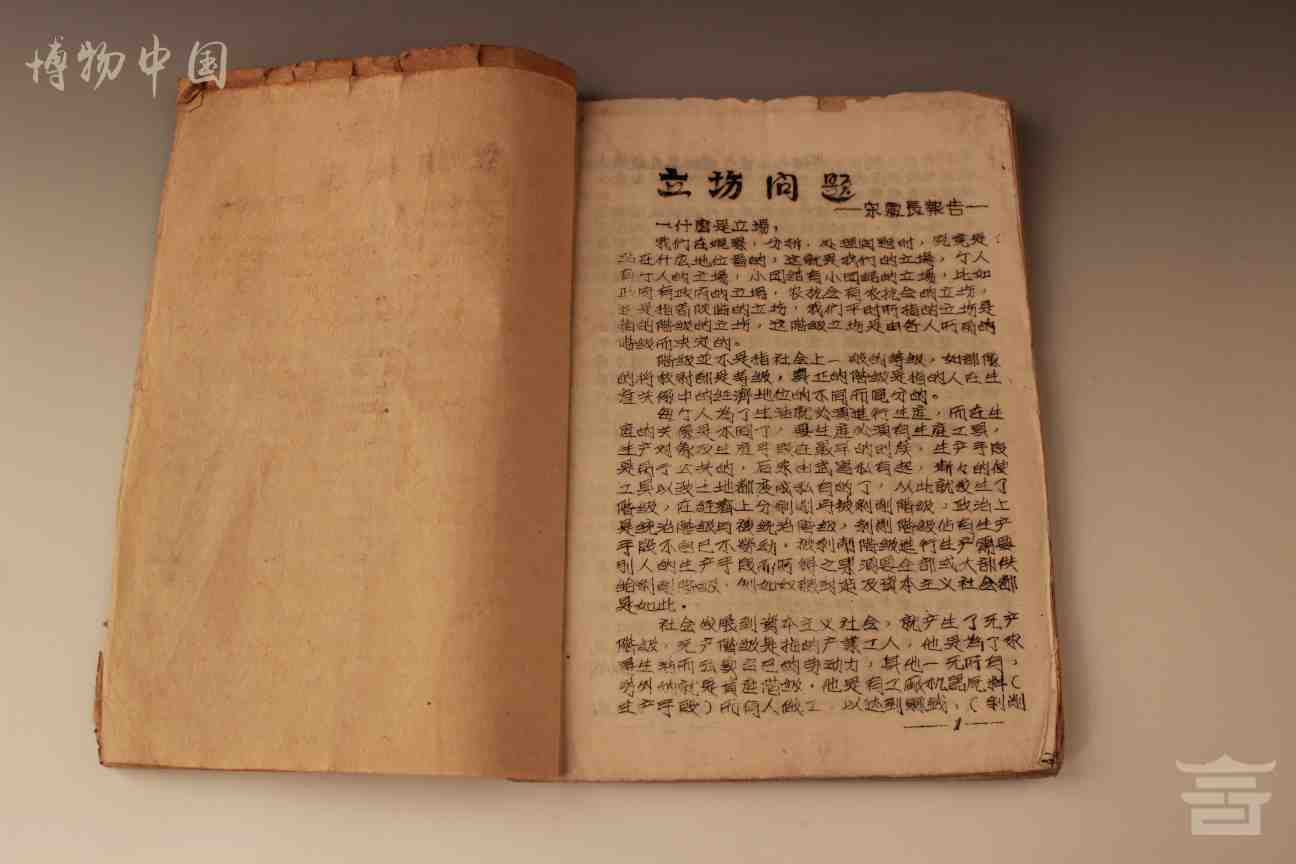 博物中国
立坊问题
—宋 長報告—
一什麽是立場，
我们在观察，分析，处理问题时，究竟是
站在什么地位看的，这就是我们的立場，个人
有个人的立場，小团結有小团結的立場，比如
政府有政府的立場，农抗会有农抗会的立坊，
的立坊，我们平时所指的立坊是
指的階級的立坊，这階級立坊是由各人所属的
階級而决定的。
階級並不是指社会上一般的等級，如部隊
的将校尉都是等級，真正的階級是指的人在生
產关係中的經濟地位的不同而區分的。
每个人為了生活就必須進行生産，而在生
産的关係是不同了，要生産必須有生産工具，
生产对象及生産手段在最早的时候，生产手段
是属于公共的，后来由武器私有起，漸々的使
工具以及土地都变成私有的了，从此就發生了
階級，在經濟上分剝削与被剝削階級，政治上
是統治階級与被統治階級，剝削階級佔有生产
手段不自己不勞动，被剝削階級進行生产需要
别人的生产手段而所得之果須要全部或大部供
給剝削階級，例如奴隸封建及資本主义社会都
是如此。
社会發展到資本主义社会，就产生了无产
階級，无产階級是指的产業工人，他是為了取
得生活而出賣自己的劳动力，其他一无所有，
另外的就是資產階級，他是有工廠机器原料（
生产手段）而 人做工 以达到賺錢，（剝削
—1—